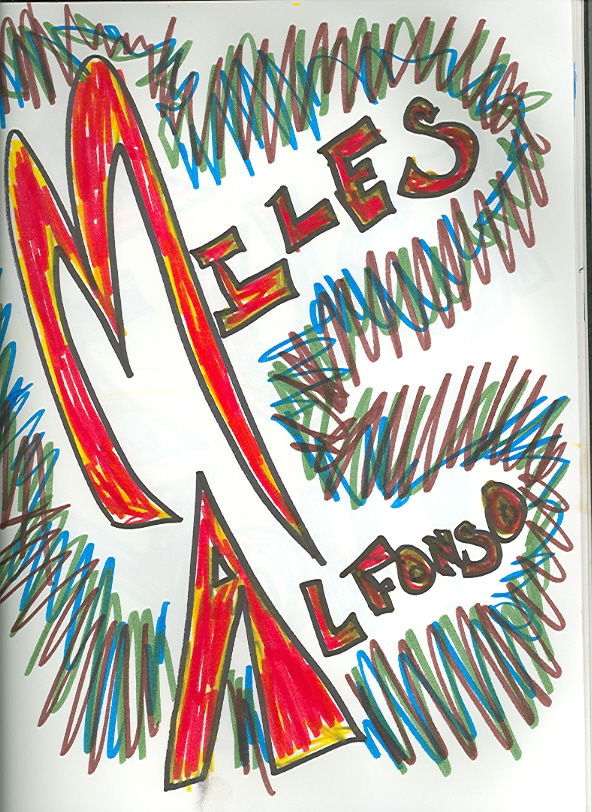 MiLES
ALFONSO